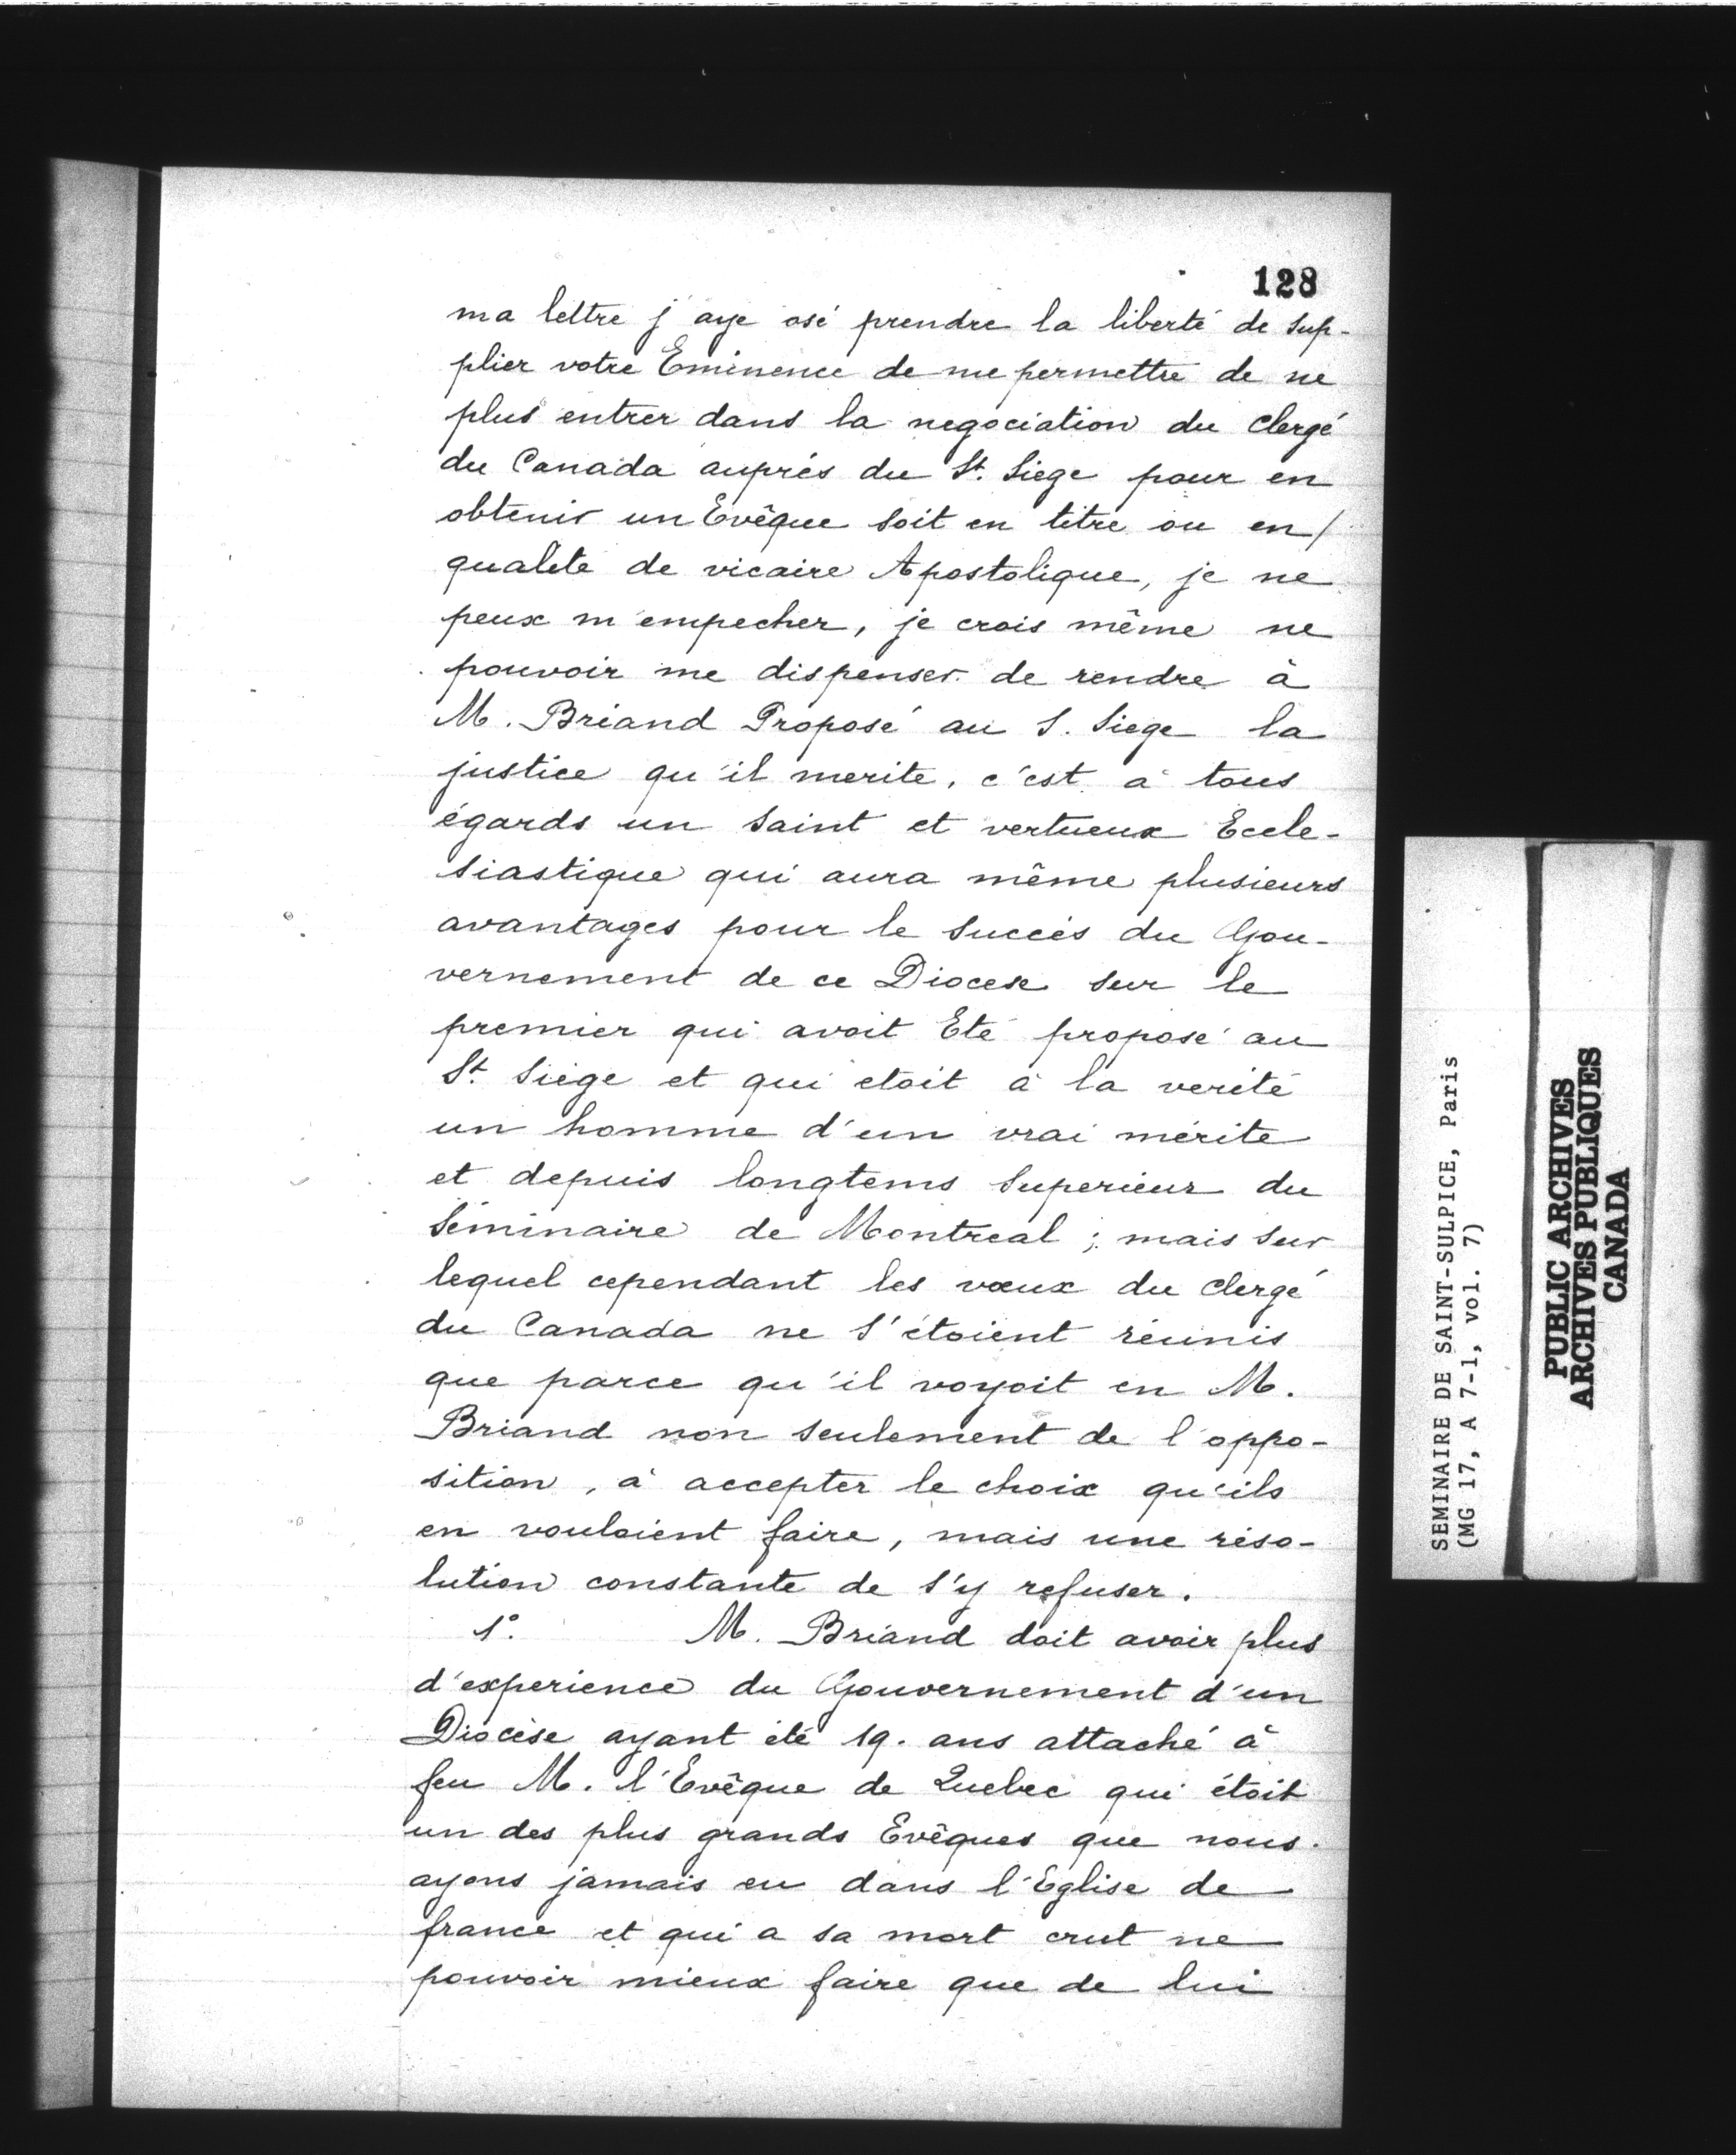 128
ma lettre j'aye osé prendre la liberté de sup-
plier votre Eminence de me permettre de ne
plus entrer dans la negociation du Clergé
du Canada auprés du St. Siege pour en
obtenir un Evêque soit en titre ou en/
qualité de vicaire Apostolique, je ne
peux m'empecher, je crois même ne
pouvoir me dispenser de rendre à
M. Briand Proposé au S. Siege la
justice qu'il merite, c'est à tous
égards un saint et vertueux Eccle-
siastique qui aura même plusieurs
avantages pour le succès du Gou-
vernement de ce Diocese sur le
premier qui avoit Eté proposé au
St. Siége et qui etoit à la verité
un homme d'un vrai mérite
et depuis longtems Superieur du
Séminaire de Montreal ; mais sur
lequel cependant les vœux du clergé
du Canada ne s'étoient réunis
que parce qu'il voyoit en M.
Briand non seulement de l'oppo-
sition, à accepter le choix qu'ils
en vouloient faire, mais une réso-
lution constante de s'y refuser.
1°. M. Briand doit avoir plus
d'experience du Gouvernement d'un
Diocèse ayant été 19. ans attaché à
feu M. l'Evêque de Quebec qui étoit
un des plus grands Evêques que nous
ayons jamais eu dans l'Eglise de
france et qui a sa mort crut ne
pouvoir mieux faire que de lui
SEMINAIRE DE SAINT-SULPICE, Paris
(MG 17, A 7-1, vol. 7)
PUBLIC ARCHIVES
ARCHIVES PUBLIQUES
CANADA